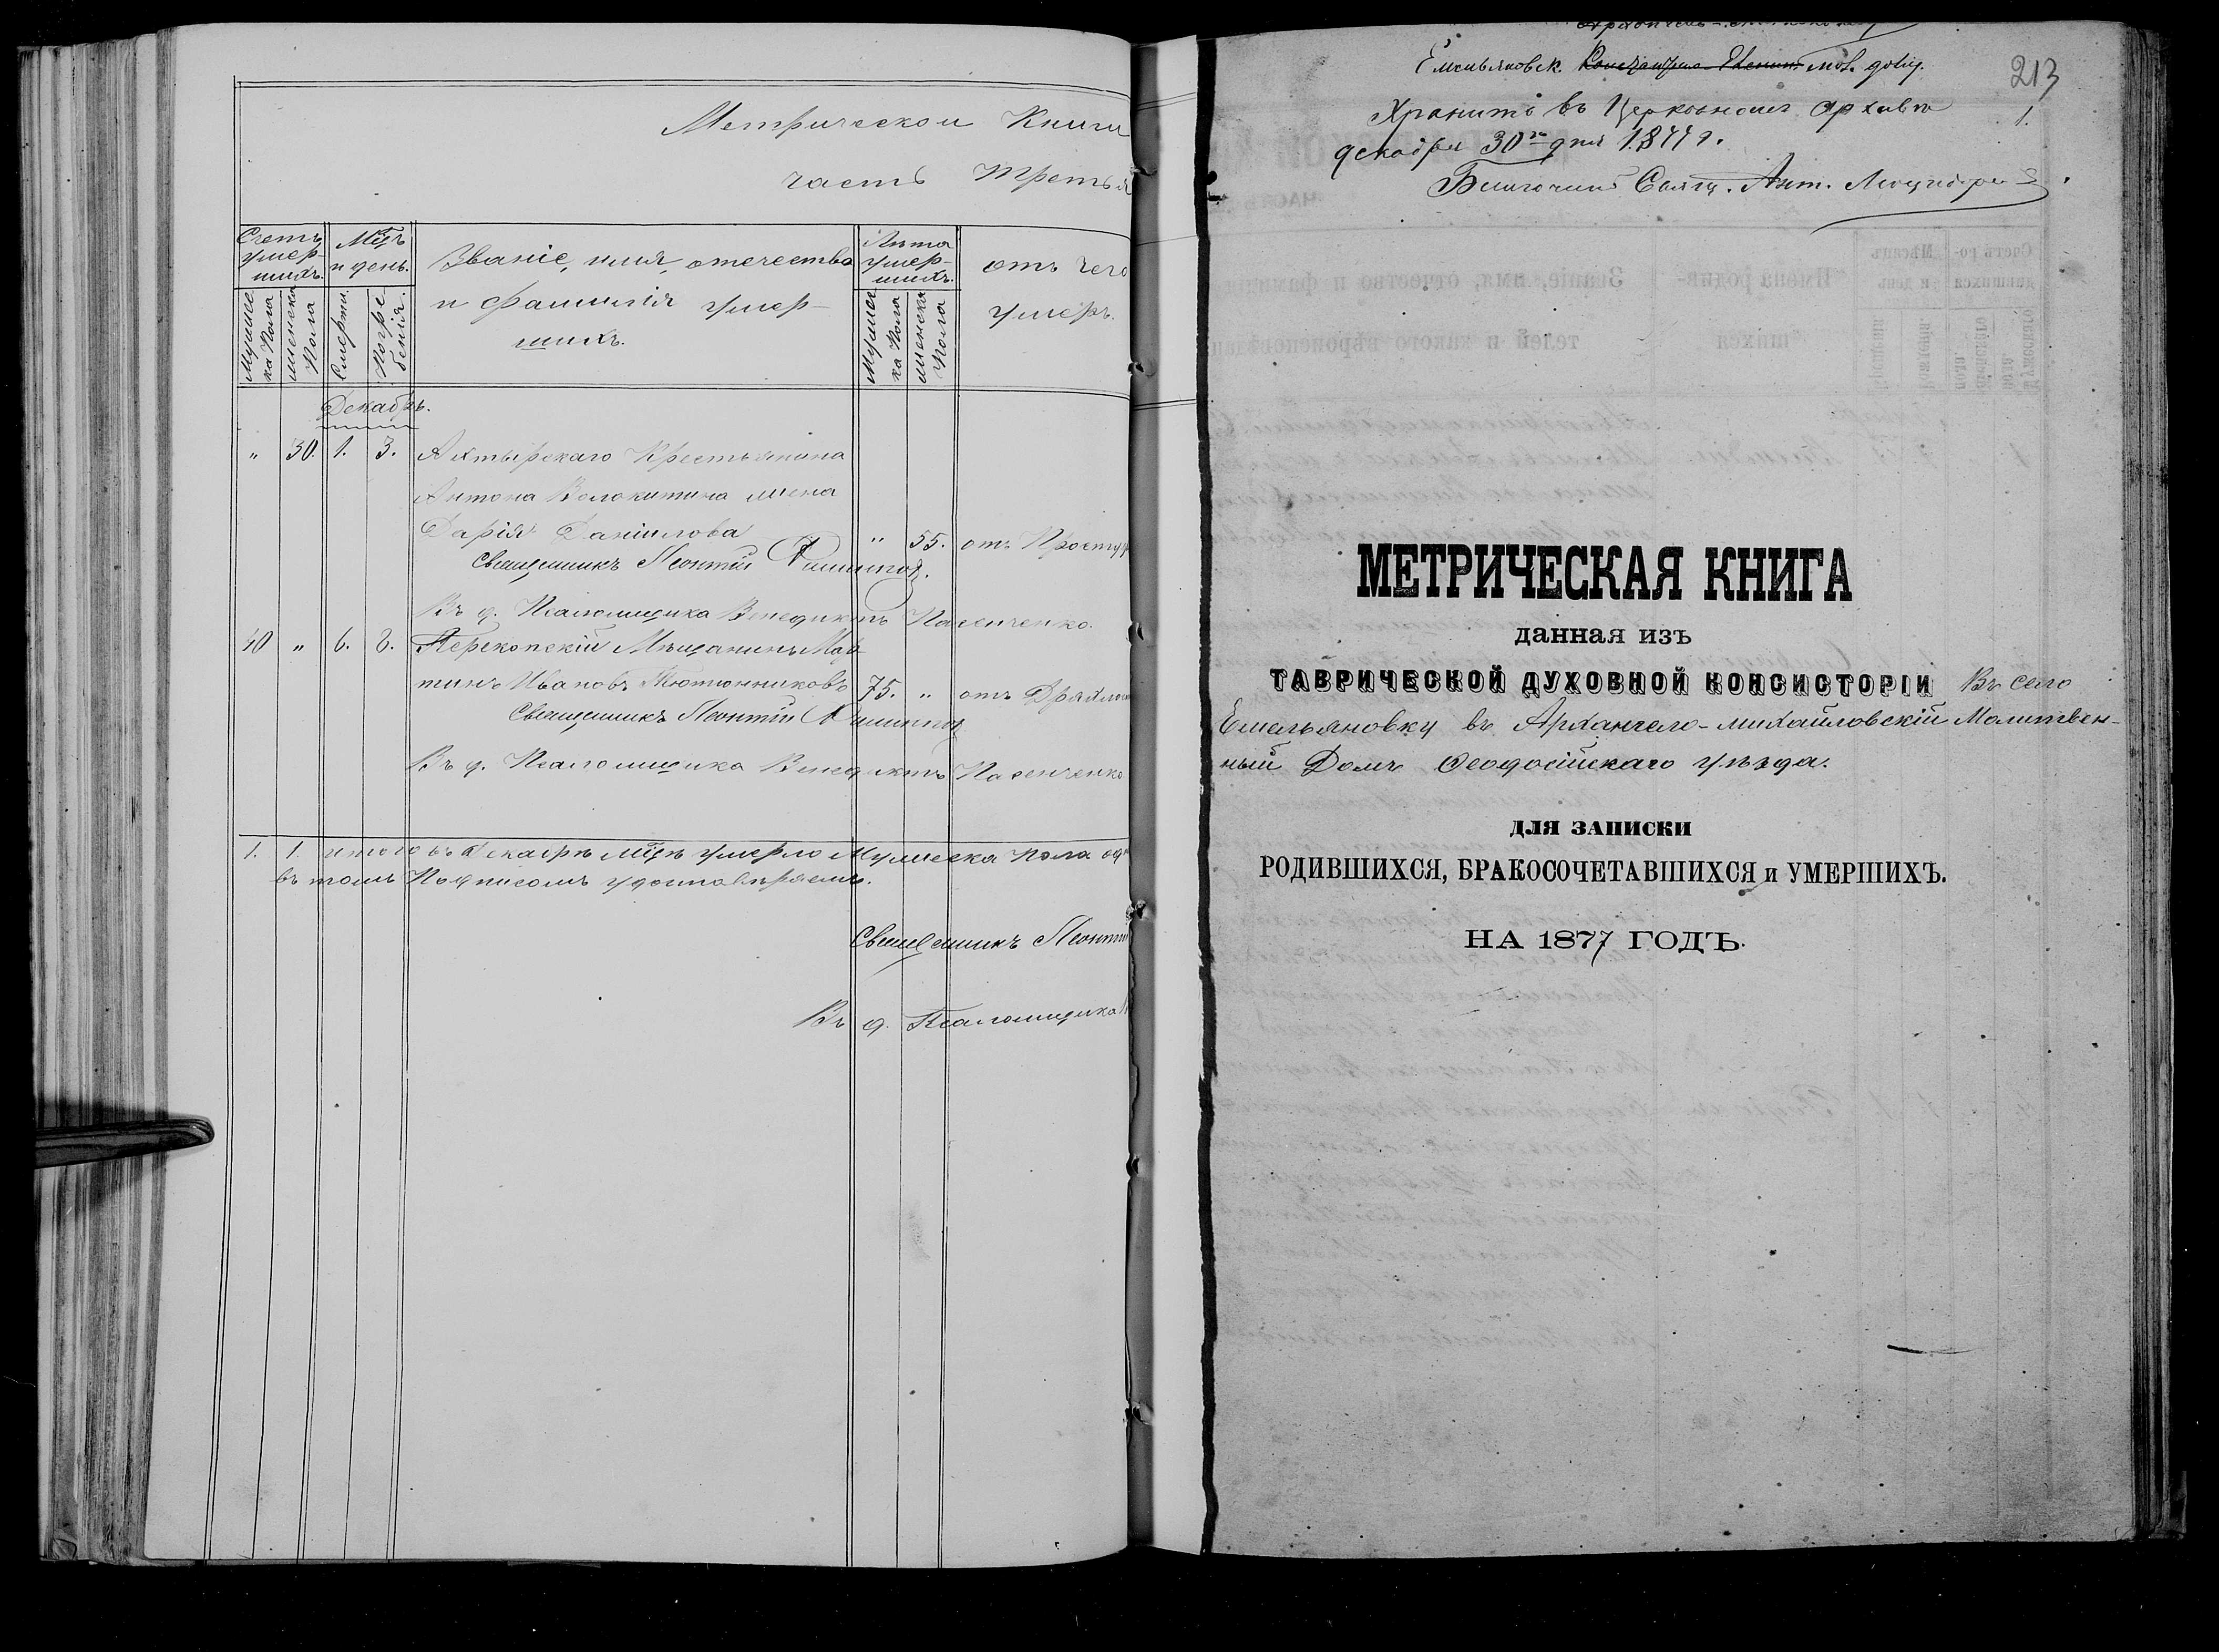 Метрической Книги
часть третья
Счетъ умер-шихъ.
Мцъ и день.
Званіе, имя, отечество
и фамилія умер-
шихъ.
Лѣта умер-шихъ.
отъ чего
умеръ.
Мужеска Пола
женска Пола
Смерти.
Погребенія.
Мужеска Пола
женска Пола
Декабрь.
" 30. 1. 3. Ахтырскаго Крестьянина
Антона Волокитина жена
Дарія Даніилова " 55. отъ Простуд
Священникъ Леонтій
Въ д. Псаломщика Венедиктъ
40 " 6. 8. Перекопскій Мѣщанинъ Мар
тинъ Ивановъ Тютюнниковъ 75. " отъ Дряхлос
Священникъ Леонтій
Въ д. Псаломщика Венедиктъ
1. 1. итого въ декабрѣ мцѣ умерло Мужеска пола од
въ томъ Подписомъ удостовѣряемъ.
Священникъ Леонтій
Въ д. Псаломщика
Емельяновск. мол. дому.
213
Хранить въ Церковномъ Архивѣ
1.
декабря 30го дня 1877 г.
Благочинный Свящ. Ант.
МЕТРИЧЕСКАЯ КНИГА
данная изъ
ТАВРИЧЕСКОЙ ДУХОВНОЙ КОНСИСТОРІИ Въ село
Емельяновку въ Архангело-михайловскій Молитвен-
ный Домъ Ѳеодосійскаго уѣзда.
ДЛЯ ЗАПИСКИ
РОДИВШИХСЯ, БРАКОСОЧЕТАВШИХСЯ и УМЕРШИХЪ.
НА 1877 ГОДЪ.